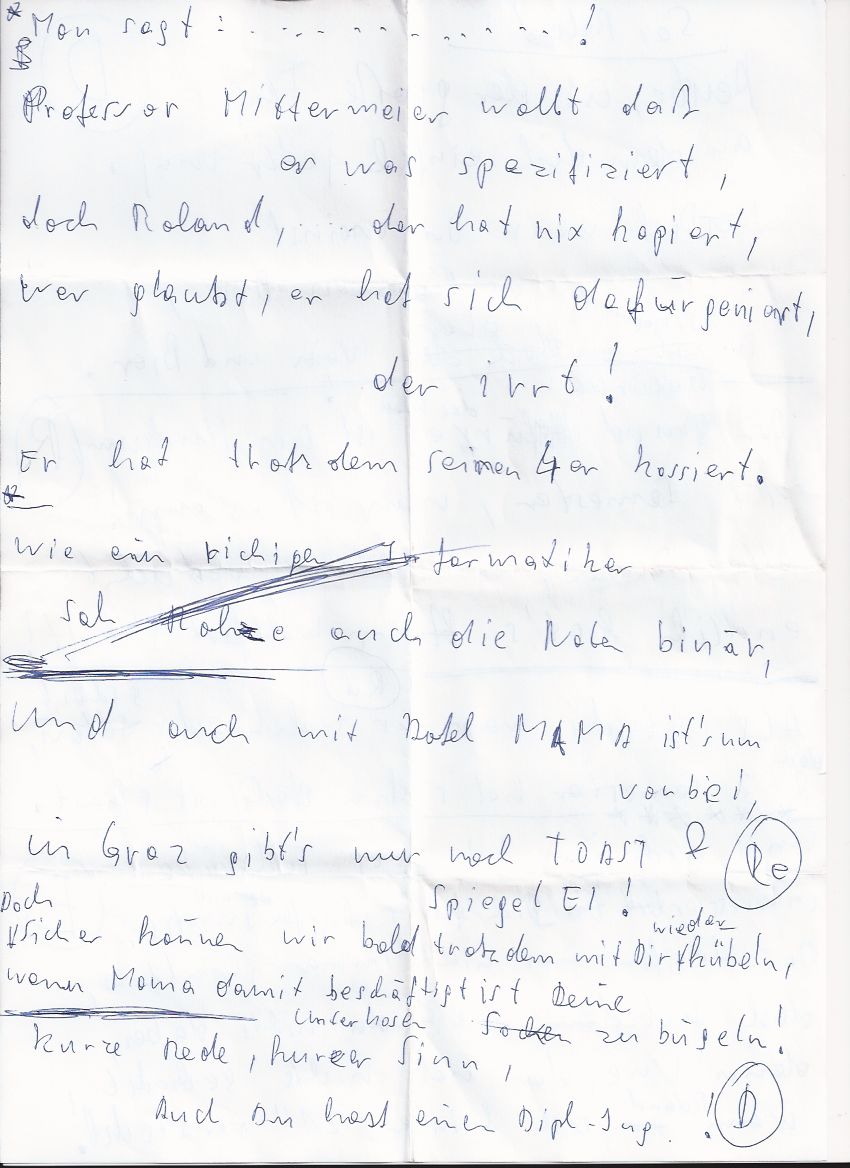 * Man sagt : . . . . . . . . . . . . !
Professor Mittermeier wollt daß
er was spezifiziert,
doch Roland, ..... der hat nix kapiert,
wer glaubt, er hat sich dafür geniert,
der irrt!
Er hat trotzdem seinen 4er kassiert.
*
wie ein richiger Informatiker
sah auch die Noten binär,
Und auch mit Hotel MAMA ist's nun
vorbei,
in Graz gibt's nur noch TOAST &
Spiegel EI! Re
Doch
sicher können wir bald trotzdem mit Dir wieder kübeln,
wenn Mama damit beschäftigt ist Deine
Unterhosen Socken zu bügeln!
Kurze Rede, kurzer Sinn,
Auch Du hast einen Dipl-Ing. ! D